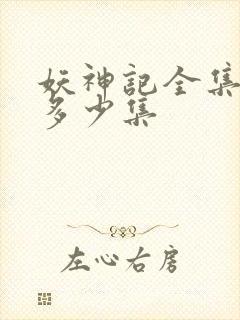 妖神記全集
多少集
左心右房